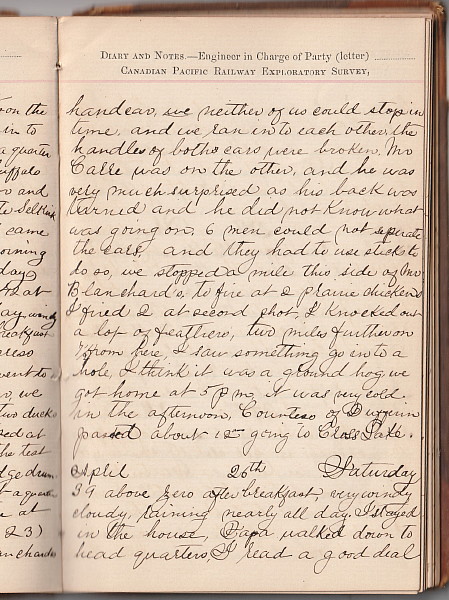 oon the
in to
a quarter
uffalo
or and
te Selkirk
came
orning
day
that
ay windy
breakfast
press
went to
o, we
two ducks
sed at
the test
dge drum
t a quarter
e at
2 3)
anchards
DIARY AND NOTES.—Engineer in Charge of Party (letter)
CANADIAN PACIFIC RAILWAY EXPLORATORY SURVEY,
handcar, we neither of us could stop in
time, and we ran into each other, the
handles of boths cars were broken, Mr
Calle was on the other, and he was
very much surprised as his back was
turned and he did not know what
was going on, 6 men could not seperate
the cars, and they had to use sticks to
do so, we stopped a mile this side of Mr
Blanchard's, to fire at 2 prairie chickens
I fired 2 at second shot, I knocked out
a lot of feathers, two miles further on
7 from here, I saw something go into a
hole, I think it was a ground hog we
got home at 5 pm, it was very cold.
in the afternoon, Countess of Dufferin
passed about 12 going to Cross Lake.
April 26th Saturday
39 above zero after breakfast, very windy
cloudy, raining nearly all day. I stayed
in the house, Papa walked down to
head quarters, I read a good deal